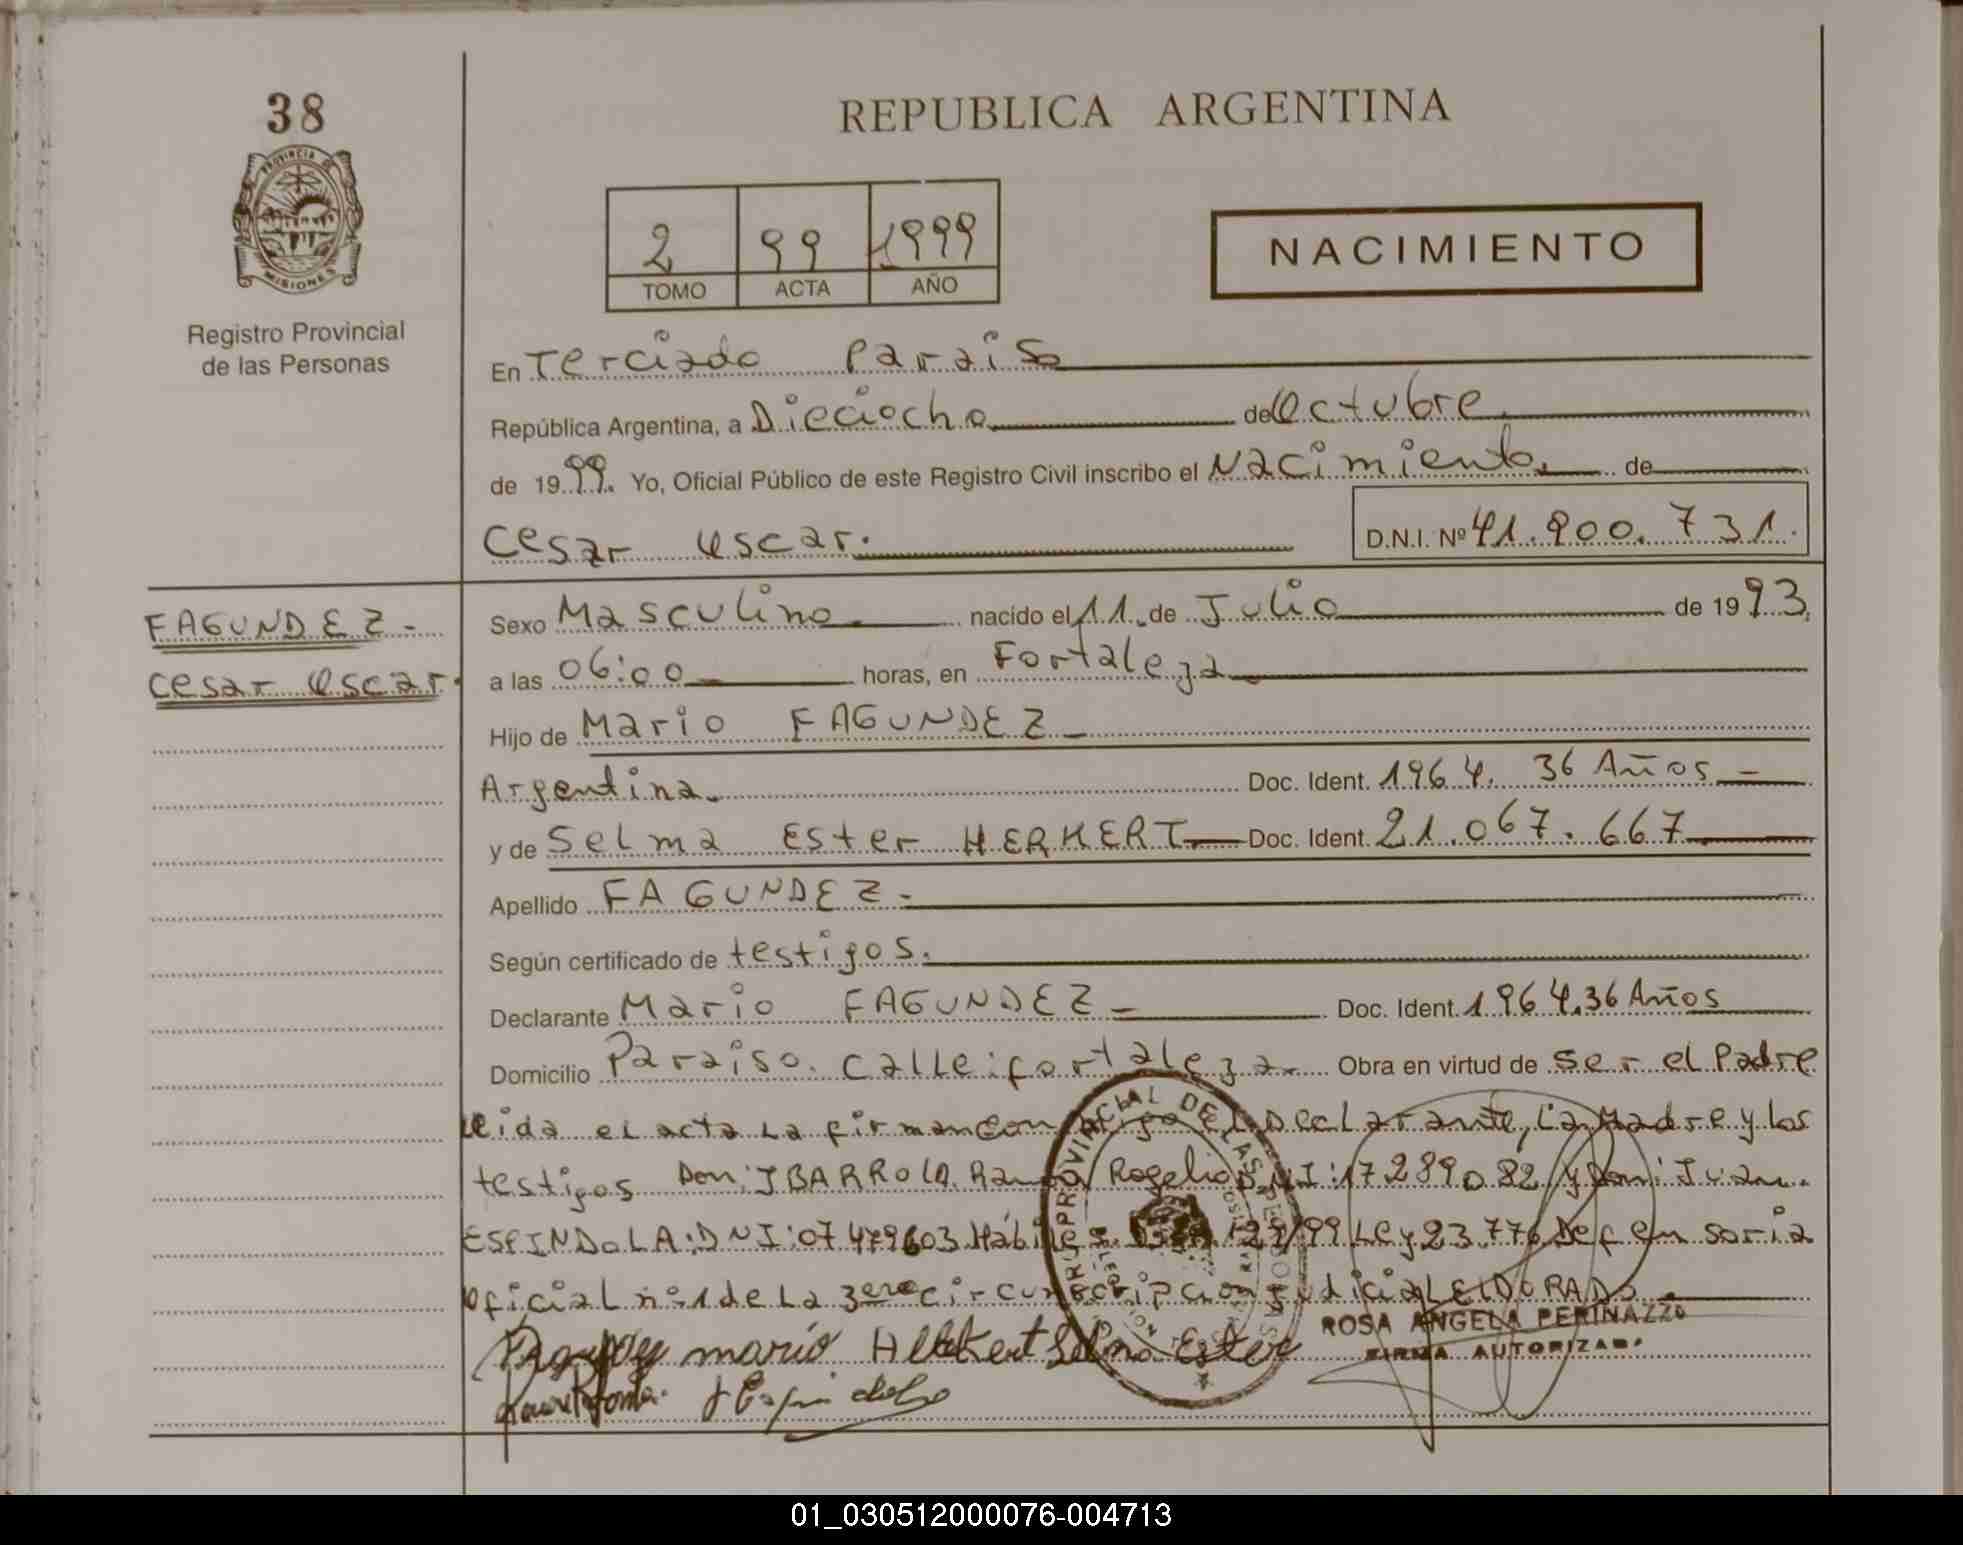 38
PROVINCIA DE
MISIONES
Registro Provincial
de las Personas
REPUBLICA ARGENTINA
2 99 1999
TOMO ACTA AÑO
NACIMIENTO
En Terciado Paraiso
República Argentina, a Dieciocho de Octubre
de 1999. Yo, Oficial Público de este Registro Civil inscribo el Nacimiento. de
Cesar Oscar. D.N.I. Nº 41.900.731.
FAGUNDEZ -
Cesar Oscar.
Sexo Masculino. nacido el 11 de Julio de 1993.
a las 06:00 horas, en Fortaleza
Hijo de Mario FAGUNDEZ
Argentina. Doc. Ident. 1964. 36 Años
y de Selma Ester HERKERT Doc. Ident. 21.067.667
Apellido FAGUNDEZ -
Según certificado de testigos.
Declarante Mario FAGUNDEZ Doc. Ident. 1964.36 Años
Domicilio Paraiso. Calle: fortaleza. Obra en virtud de Ser el Padre
Leida el acta La firman conmigo el Declarante, La Madre y Los
testigos Don: IBARROLA. Ramon Rogelio DNI: 17289082 y Don: Juan.
ESPINDOLA: DNI: 07479603 Hábiles. 129/99 Ley 23.776 Defensoria
Oficial nº 1 de La 3era circunscripcion Judicial ELDORADO.
REGISTRO PROVINCIAL DE LAS PERSONAS
ROSA ANGELA PERINAZZO
FIRMA AUTORIZADA
mario Selma Ester
J Espindola
01_030512000076-004713